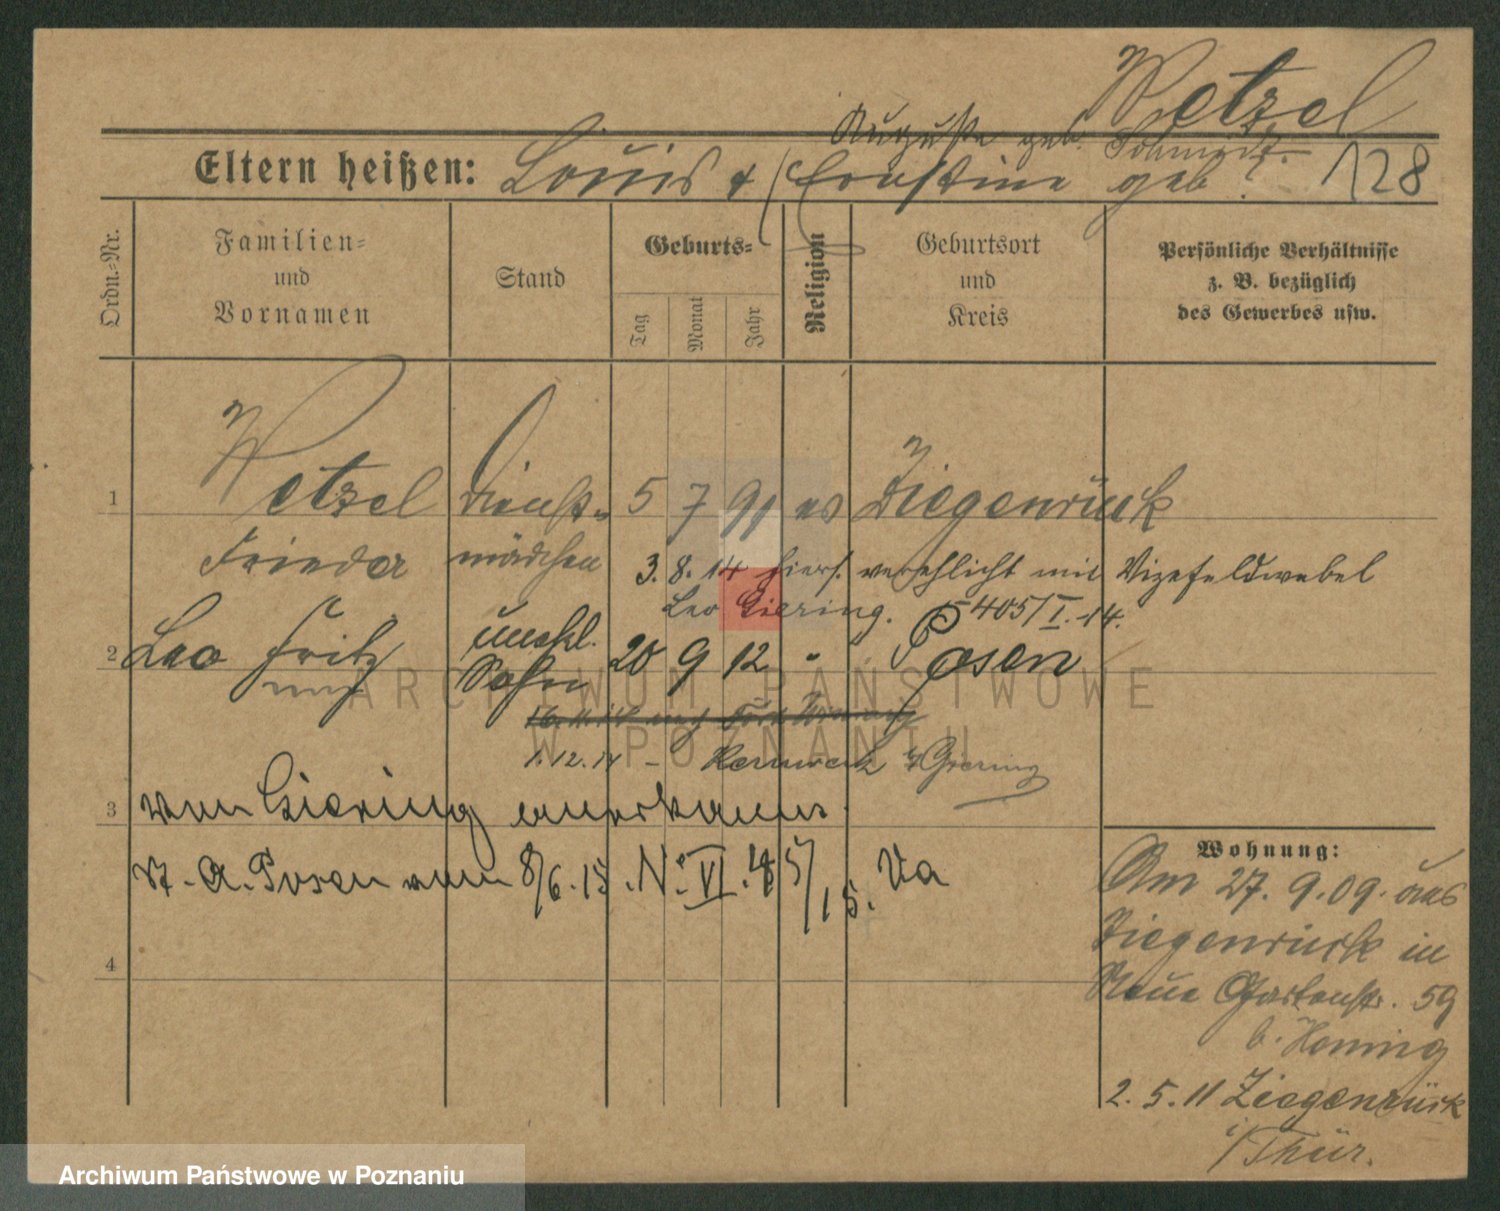 Wetzel
Auguste geb. Schmidt.
Eltern heißen: Louis & (Ernstine geb ? 128
Ordn.=Nr.
Familien=
und
Vornamen
Stand
Geburts=
Tag
Monat
Jahr
Religion
Geburtsort
und
Kreis
Persönliche Verhältnisse
z. B. bezüglich
des Gewerbes usw.
1 Wetzel Dienst= 5 7 91 ev Ziegenrück
Frieda mädchen
3. 8. 14 hiers. verehlicht mit Vizefeldwebel
Leo Giering. 405/I. 14.
2 Leo Fritz unehl. Sohn 20 9 12 " Posen
1.12.14 - Giering
3 von Giering anerkannt.
St. A. Posen vom 8/6.15. No VI. 5/15. Va
4
Wohnung:
Am 27. 9. 09. aus
Ziegenrück in
Neue Gartenstr. 59
b. Honnig
2. 5. 11 Ziegenrück
i/Thür.
ARCHIWUM PAŃSTWOWE
W POZNANIU
Archiwum Państwowe w Poznaniu